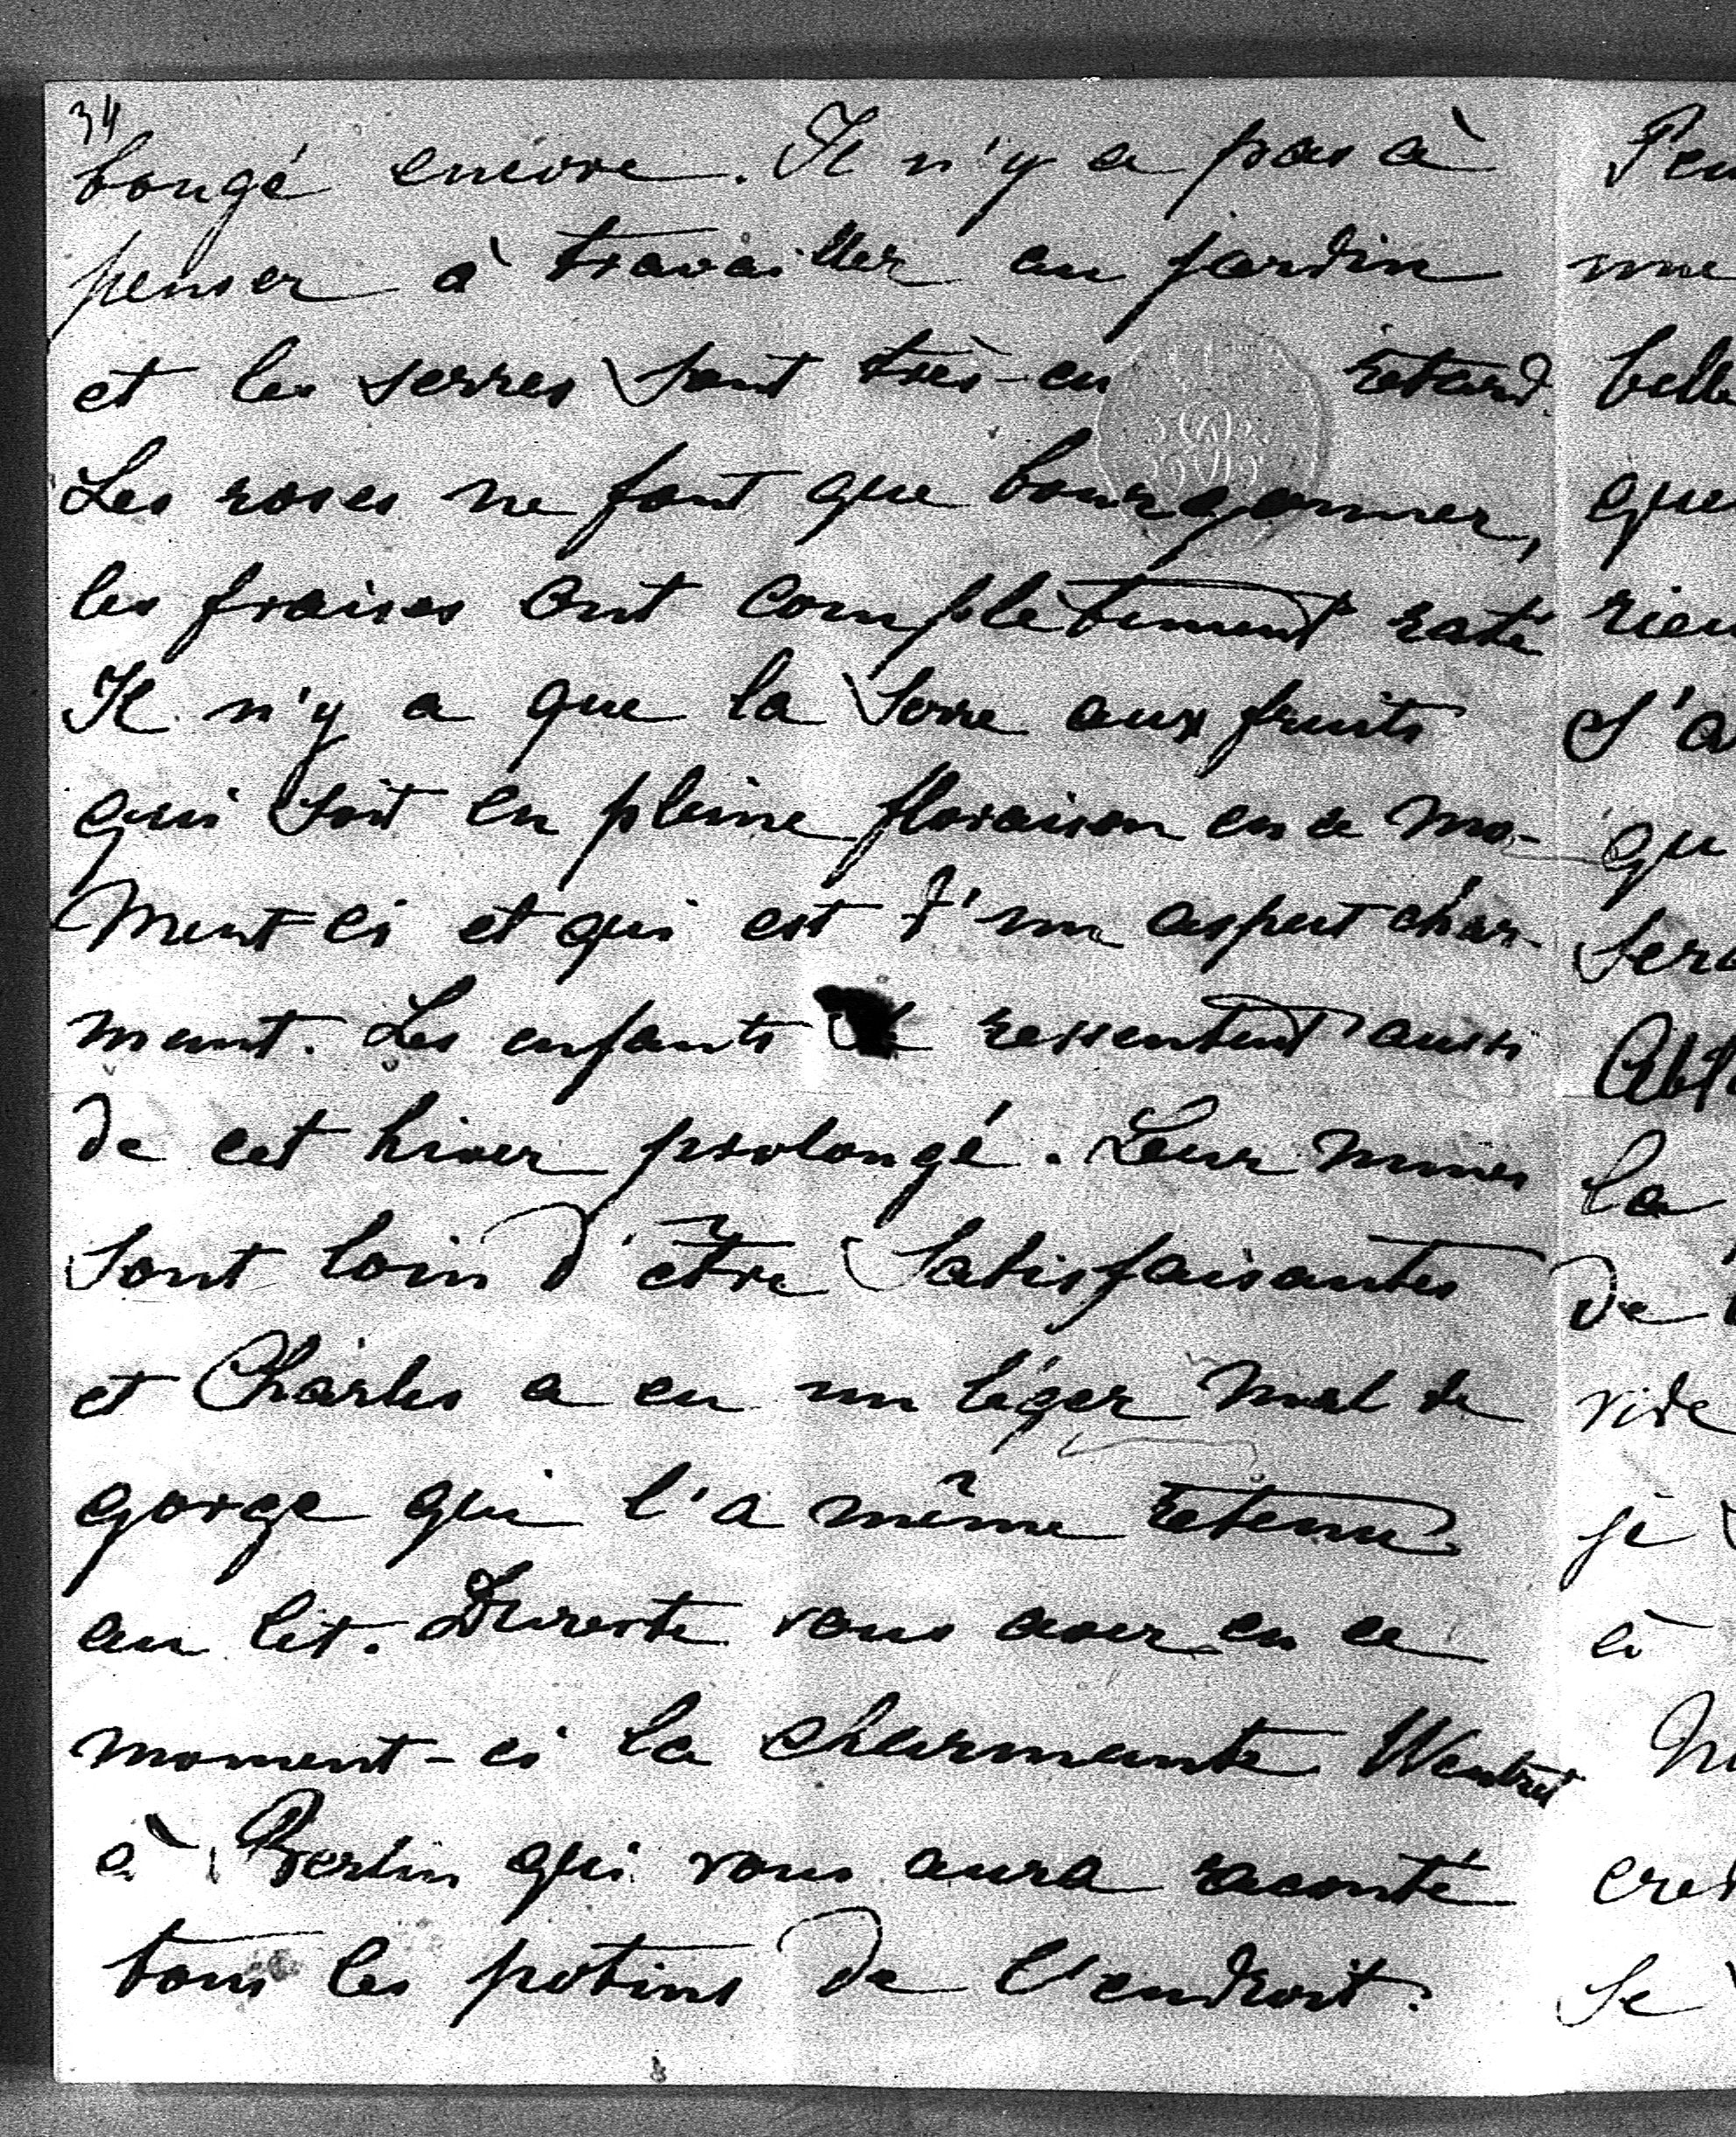 34
bougé encore. Il n'y a pas à
penser à travailler au jardin
et les serres sont très-en retard.
Les roses ne font que bourgeonner,
les fraises ont complètement raté
Il n'y a que la serre aux fruits
qui soit en pleine floraison en ce mo-
ment ci et qui est d'un aspect char-
mant. Les enfants se ressentent aussi
de cet hiver prolongé. Leur mines
sont loin d'être satisfaisantes
et Charles a eu un léger mal de
gorge qui l'a même retenu
au lit. Dureste vous avez en ce
moment-ci la charmante
à Berlin qui vous aura raconté
tous les potins de l'endroit.
belle
que
rien
qu
la
de
vide
je
à
se